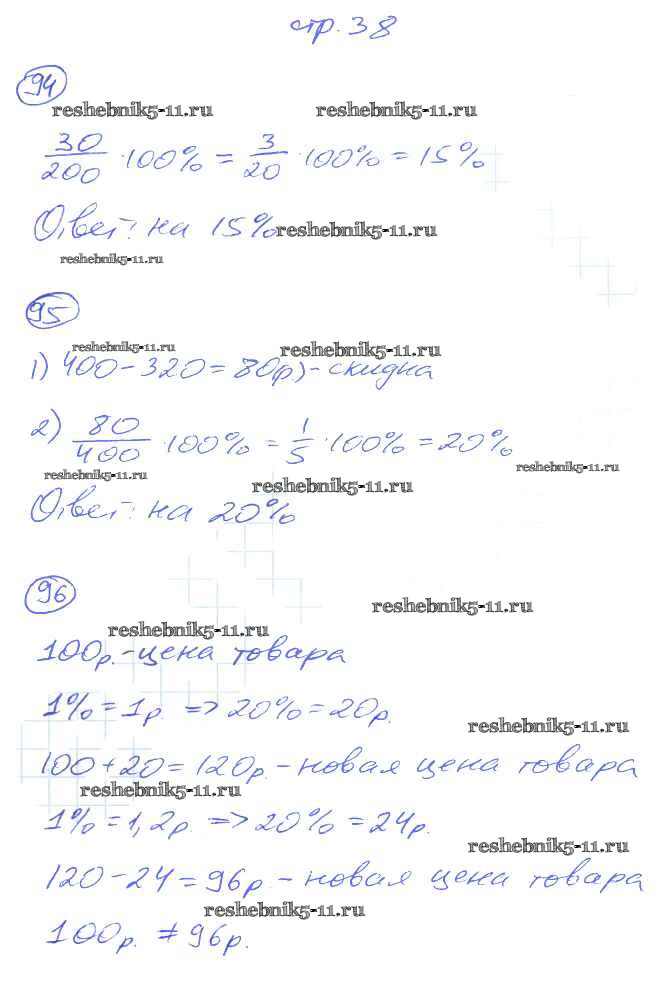 стр. 38
94
reshebnik5-11.ru reshebnik5-11.ru
30/200 · 100% = 3/20 · 100% = 15%
Ответ: на 15% reshebnik5-11.ru
reshebnik5-11.ru
95
reshebnik5-11.ru reshebnik5-11.ru
1) 400 - 320 = 80(р) - скидка
2) 80/400 · 100% = 1/5 · 100% = 20%
reshebnik5-11.ru reshebnik5-11.ru reshebnik5-11.ru
Ответ: на 20%
96
reshebnik5-11.ru
reshebnik5-11.ru
100р. - цена товара
1% = 1р. => 20% = 20р.
reshebnik5-11.ru
100 + 20 = 120р. - новая цена товара
reshebnik5-11.ru
1% = 1,2р. => 20% = 24р.
reshebnik5-11.ru
120 - 24 = 96р. - новая цена товара
reshebnik5-11.ru
100р. ≠ 96р.